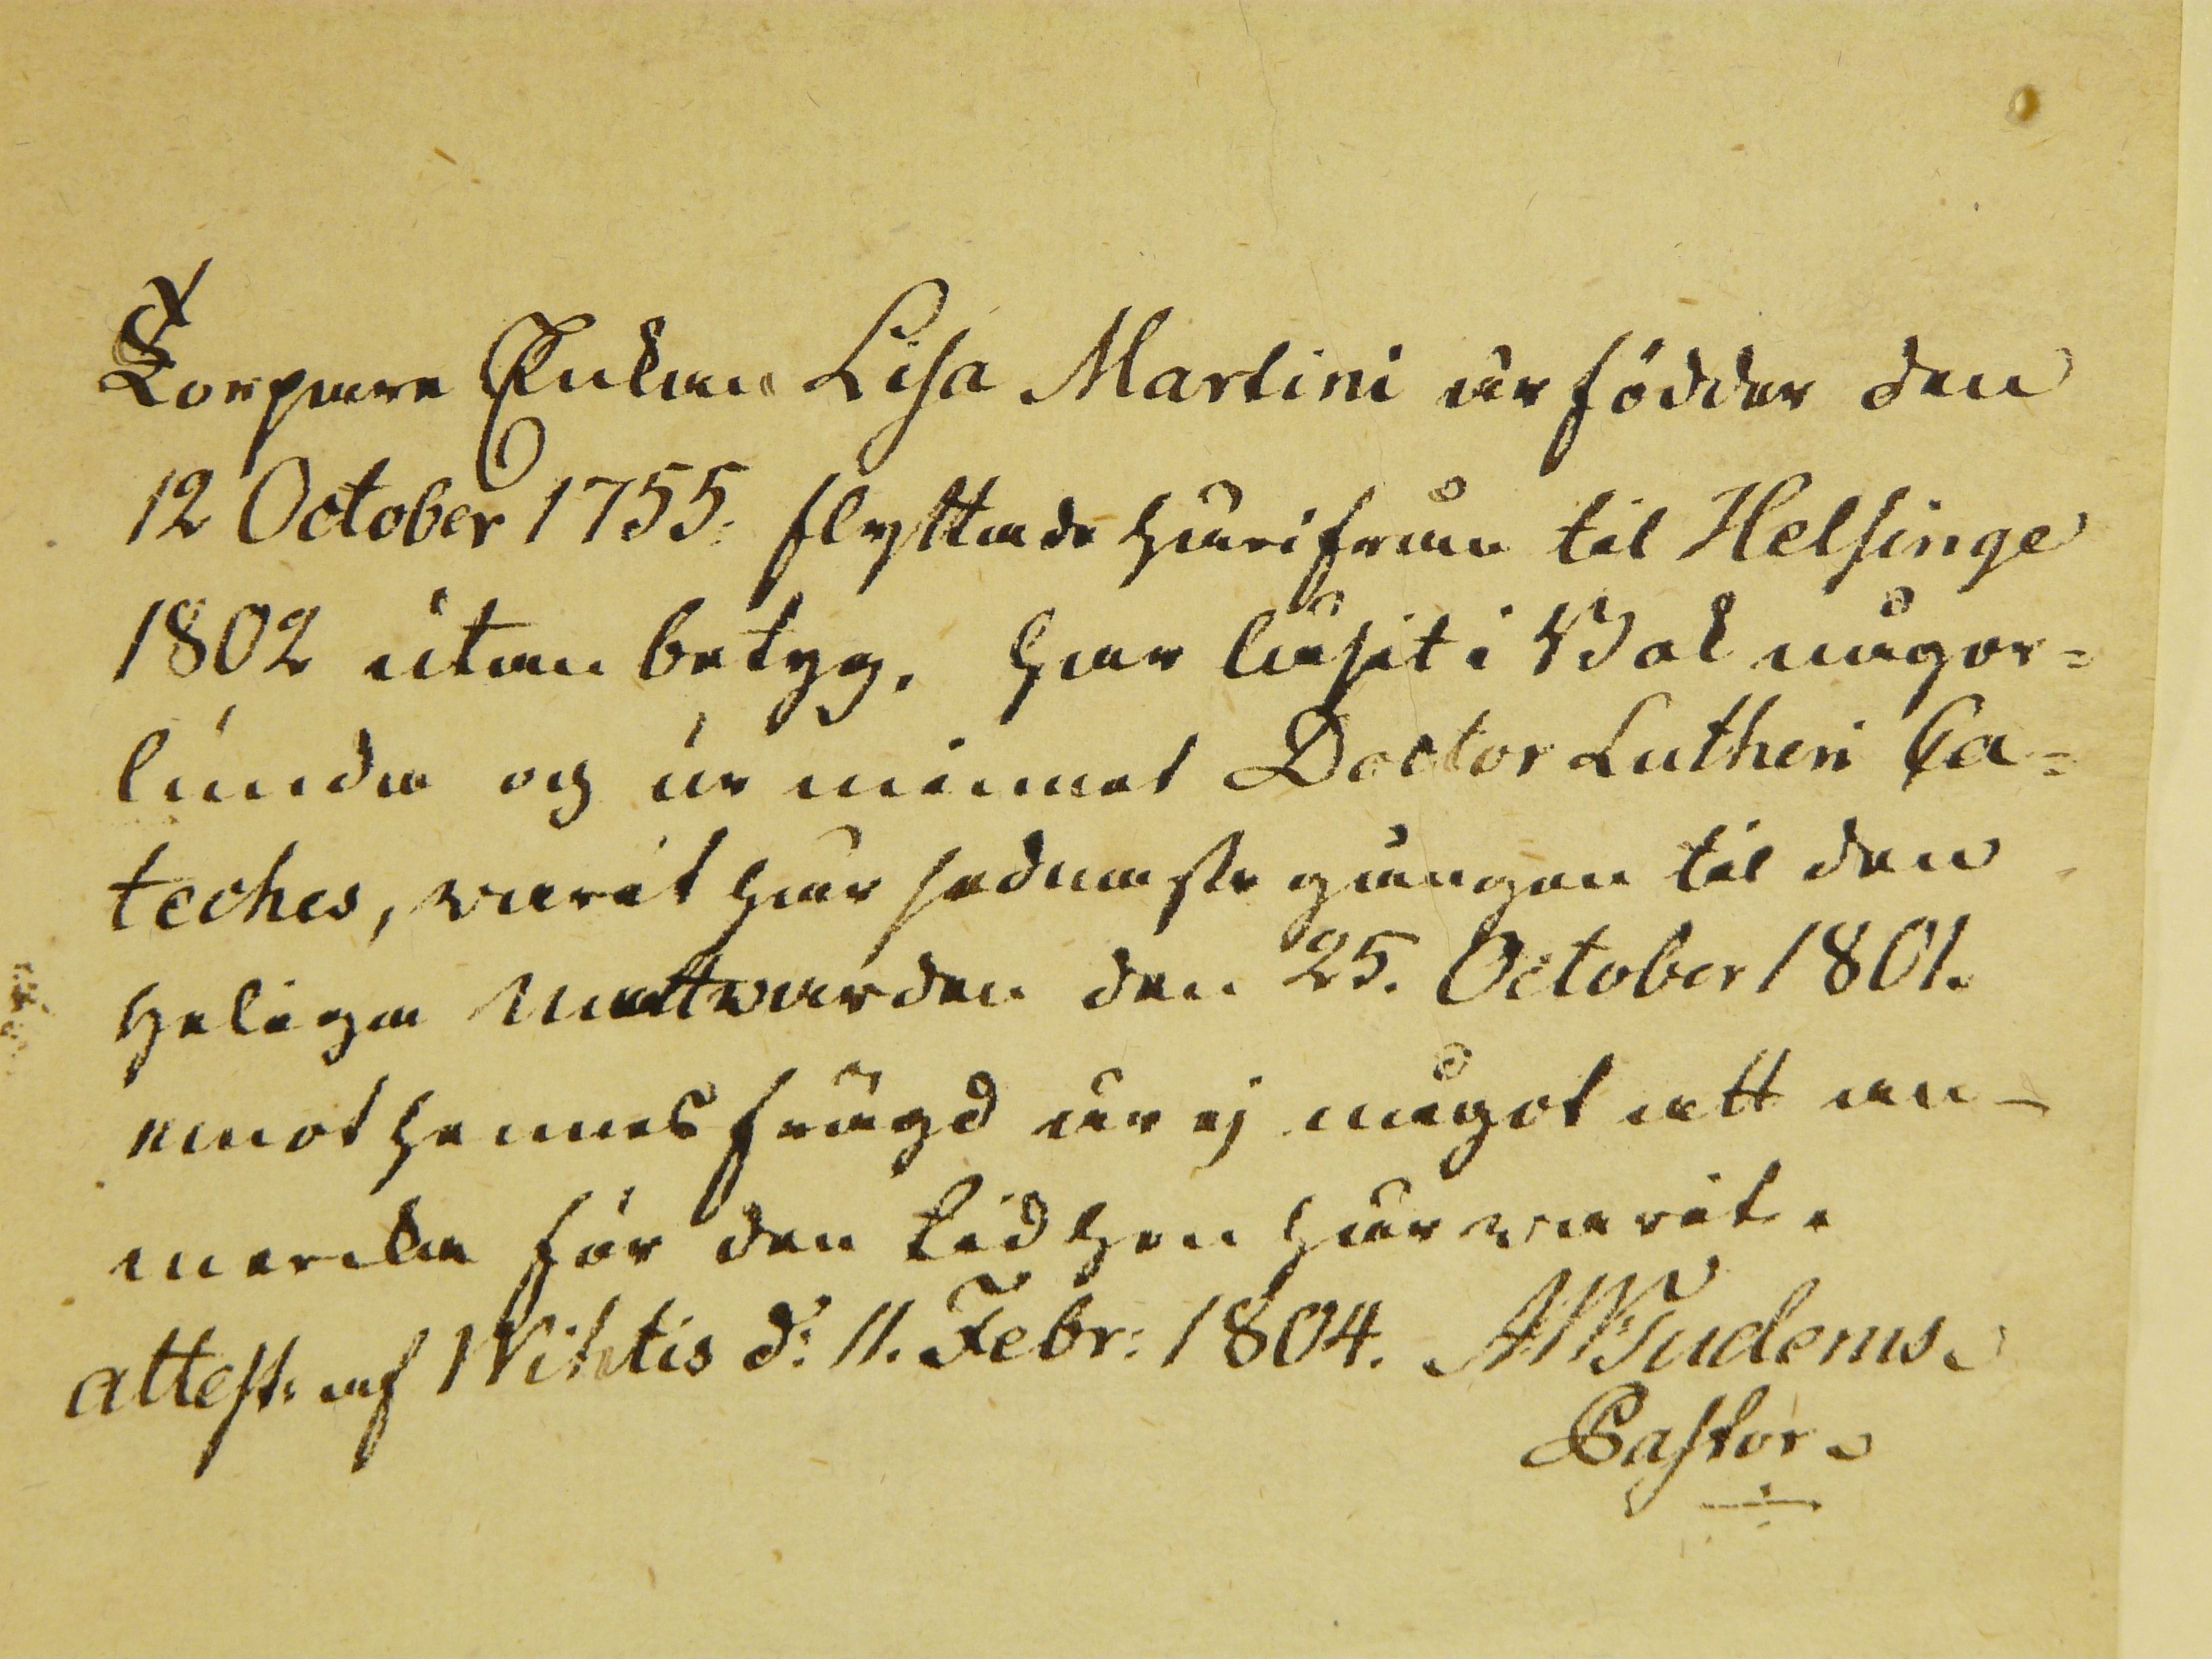 Torpare Enkan Lisa Martini är födder den
12 October 1755. flyttade härifrån til Helsinge
1802 utan betyg. har läsit i Bok någor=
lunda og ur minnet Doctor Lutheri Ca=
teches, warit här sednaste gången til den
heliga Nattwarden den 25. October 1801.
emot hennes frägd är ej något att an-
merka för den tid hon här warit.
attest. af Wihtis d: 11. Febr: 1804.
Pastor.